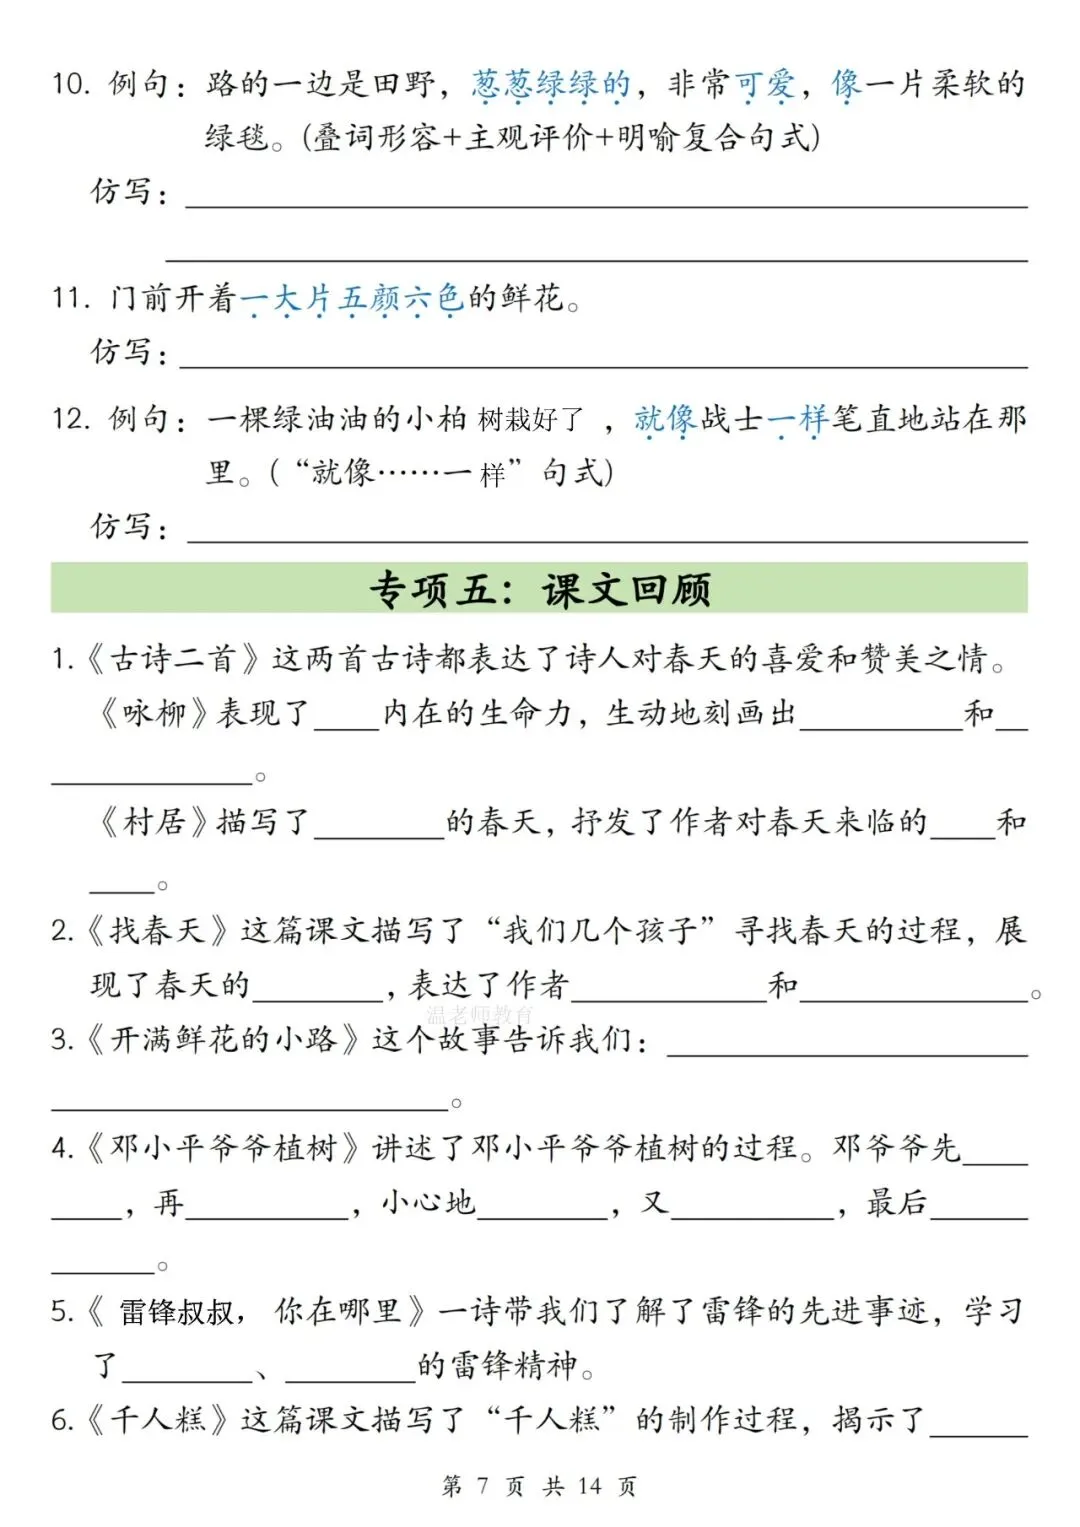 10. 例句：路的一边是田野，葱葱绿绿的，非常可爱，像一片柔软的
绿毯。(叠词形容+主观评价+明喻复合句式)
仿写：
11. 门前开着一大片五颜六色的鲜花。
仿写：
12. 例句：一棵绿油油的小柏 树栽好了 ，就像战士一样笔直地站在那
里。(“就像……一 样”句式)
仿写：
专项五：课文回顾
1.《古诗二首》这两首古诗都表达了诗人对春天的喜爱和赞美之情。
《咏柳》表现了____内在的生命力，生动地刻画出__________和__
____________。
《村居》描写了________的春天，抒发了作者对春天来临的____和
____。
2.《找春天》这篇课文描写了“我们几个孩子”寻找春天的过程，展
现了春天的________，表达了作者____________和______________。
温老师教育
3.《开满鲜花的小路》这个故事告诉我们：______________________
________________________。
4.《邓小平爷爷植树》讲述了邓小平爷爷植树的过程。邓爷爷先____
____，再__________，小心地________，又__________，最后______
______。
5.《 雷锋叔叔， 你在哪里》一诗带我们了解了雷锋的先进事迹，学习
了________、________的雷锋精神。
6.《千人糕》这篇课文描写了“千人糕”的制作过程，揭示了______
第 7 页 共 14 页